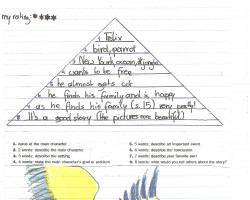 my rating: ****
1 Felix
2 bird, parrot
3 New York, ocean, jungle
4 wants to be free
5 he almost gets cot
6 he finds his family and is happy
7 as he finds his family (s.15) very pretty!
8 It's a good story (the pictures are beautiful!)
1. name of the main character
2. 2 words: describe the main character
3. 3 words: describe the setting
4. 4 words: state the main character's goal or problem
5. 5 words: describe an important event
6. 6 words: describe the conclusion
7. 7 words: describe your favorite part
8. 8 words: what would you tell others about the story?